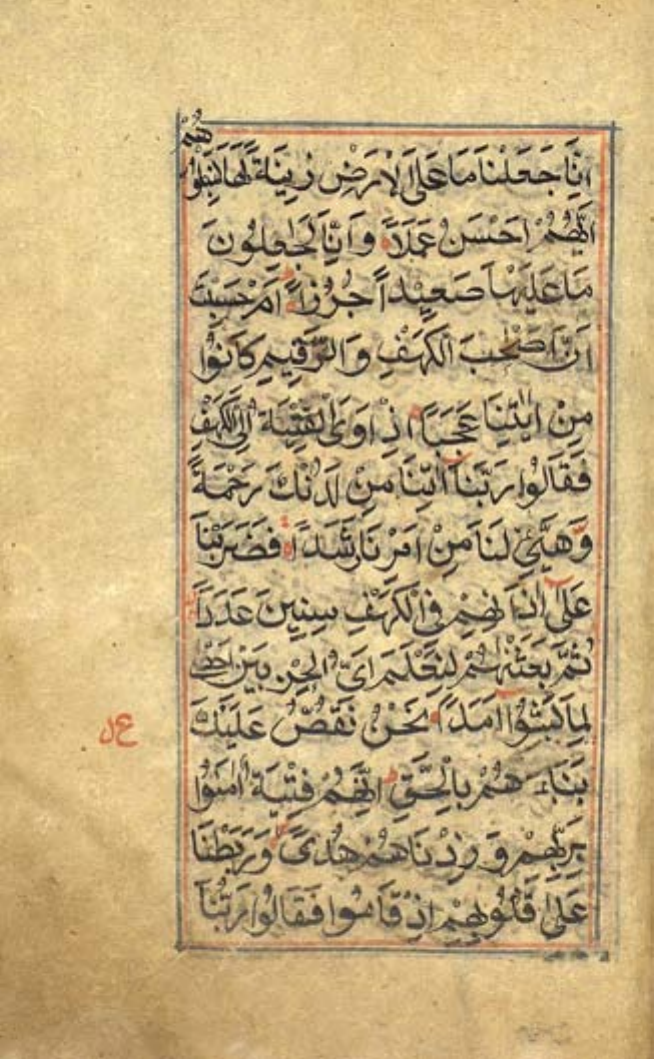 هُمْ
اِنَّا جَعَلْنَا مَا عَلَى الْاَرْضِ زِينَةً لَهَا لِنَبْلُوَ
اَيُّهُمْ اَحْسَنُ عَمَلًا وَاِنَّا لَجٰعِلُونَ
مَا عَلَيْهَا صَعِيْداً جُرُزاً اَمْ حَسِبْتَ
اَنَّ اَصْحٰبَ الْكَهْفِ وَالرَّقِيمِ كَانُوْا
مِنْ اٰيٰتِنَا عَجَبًا اِذْ اَوَى الْفِتْيَةُ اِلَى الْكَهْفِ
فَقَالُوْا رَبَّنَا اٰتِنَا مِنْ لَدُنْكَ رَحْمَةً
وَّهَيِّئْ لَنَا مِنْ اَمْرِنَا رَشَدًا فَضَرَبْنَا
عَلٰى اٰذَانِهِمْ فِي الْكَهْفِ سِنِينَ عَدَدًا
ثُمَّ بَعَثْنٰهُمْ لِنَعْلَمَ اَىُّ الْحِزْبَيْنِ اَحْصٰى
لِمَا لَبِثُوْا اَمَدًا نَحْنُ نَقُصُّ عَلَيْكَ
نَبَاَهُمْ بِالْحَقِّ اِنَّهُمْ فِتْيَةٌ اٰمَنُوْا
بِرَبِّهِمْ وَزِدْنَاهُمْ هُدًى وَرَبَطْنَا
عَلٰى قُلُوْبِهِمْ اِذْ قَامُوا فَقَالُوْا رَبُّنَا